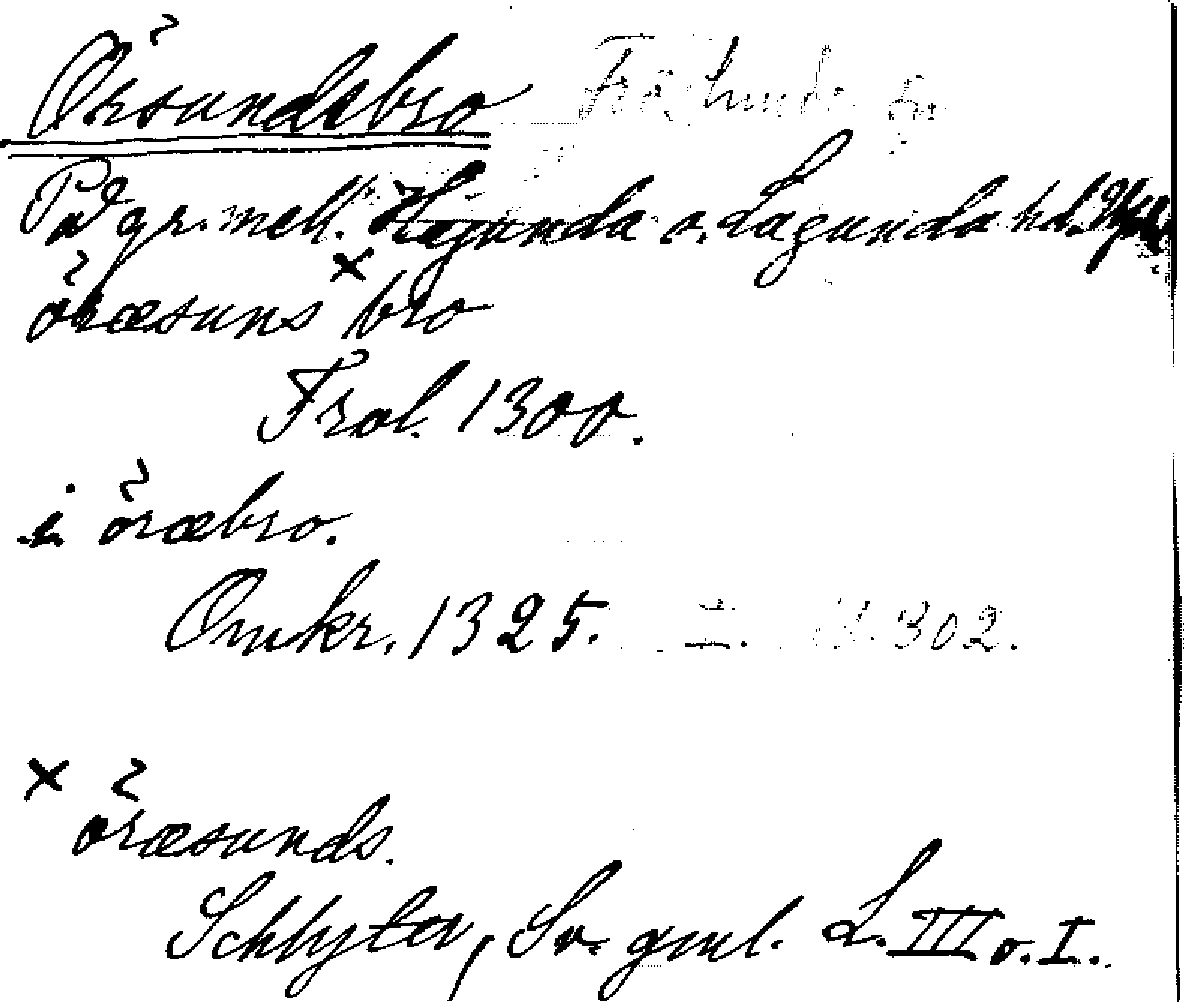 Örsundsbro Fröslunda sn
På gr. mell. Hagunda o. Lagunda hd. Upl.
öræsuns × bro
Frål. 1300.
i öræbro.
Omkr. 1325. I. 302.
× öræsunds.
Schlyter, Sv. gml. L. III o. I.